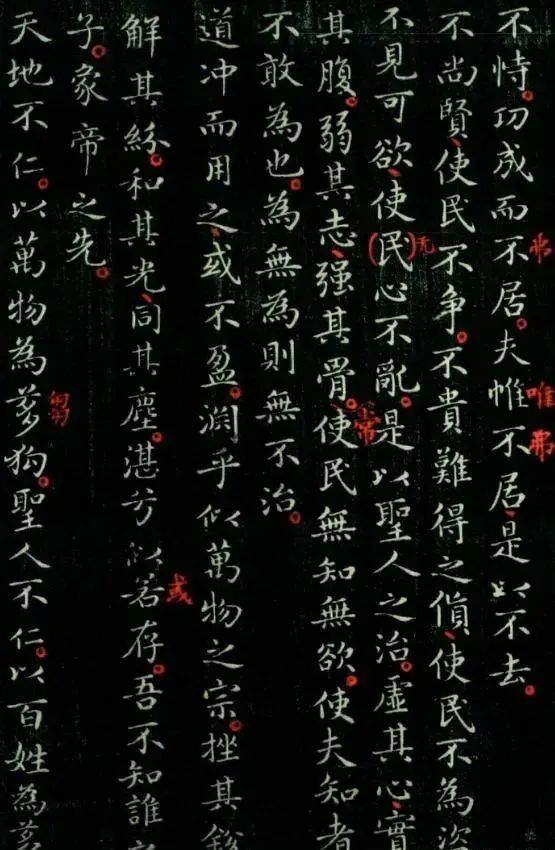 不恃。功成而不居。夫惟不居、是以不去。
弗
唯弗
不尚賢、使民不争。不貴難得之貨、使民不為盗
不見可欲、使(民)心不亂。是以聖人之治。虛其心、實
无
其腹。弱其志、强其骨。使民無知無欲。使夫知者
常
不敢為也。為無為則無不治。
道冲而用之、或不盈。渊乎似萬物之宗。挫其銳
解其紛。和其光、同其塵。湛兮似若存。吾不知誰之
或
子。象帝之先。
天地不仁。以萬物為芻狗。聖人不仁。以百姓為芻
芻